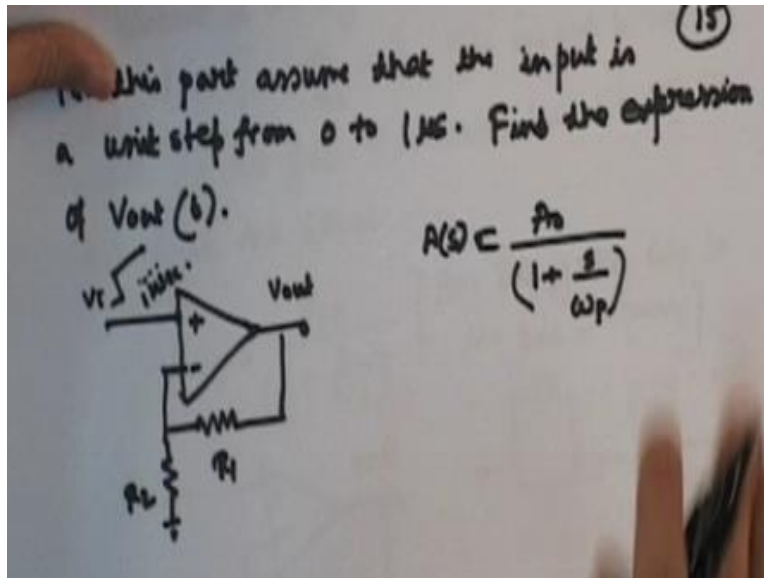 15
this part assume that the input is
a unit step from 0 to 1μs. Find the expression
of Vout (t).
A(s) = A0
(1 + s
ωp)
Vout
+
-
R1
R2